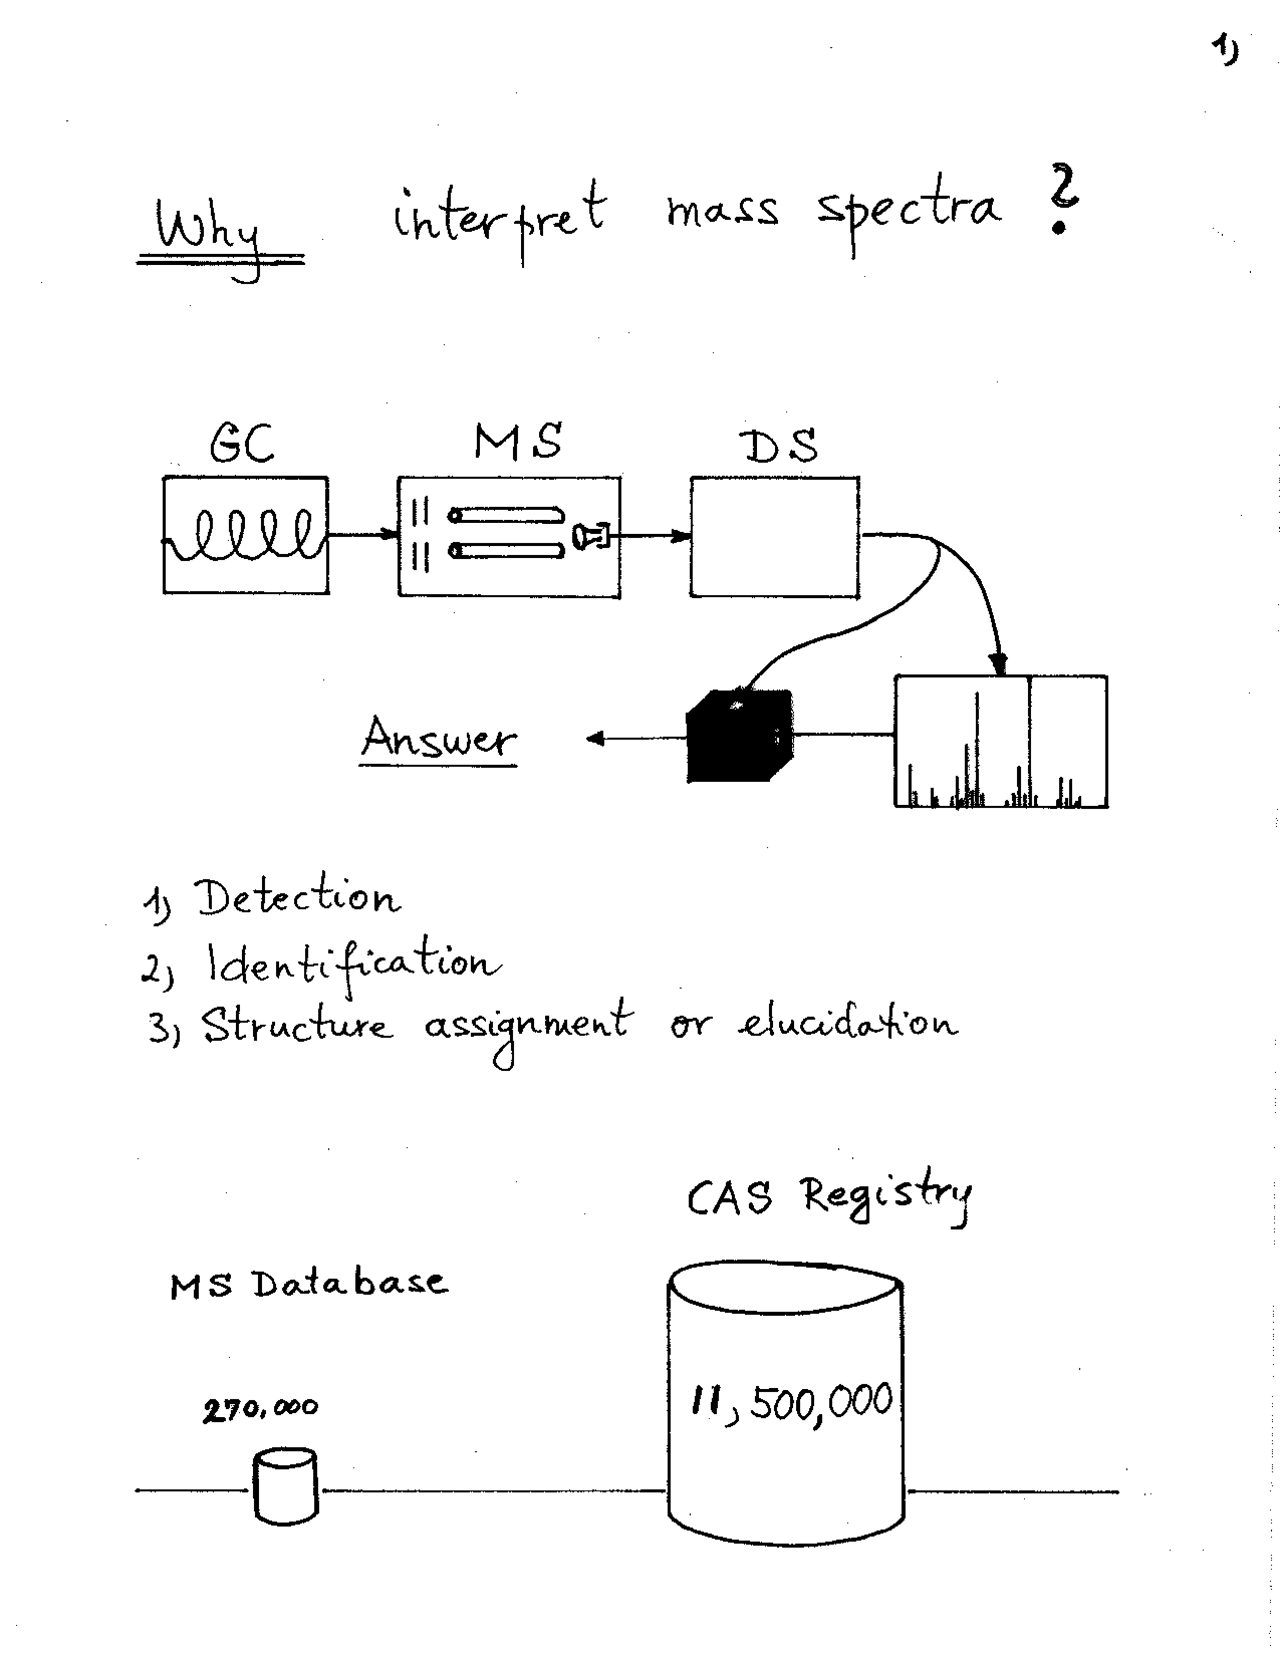 1)
Why interpret mass spectra?
GC MS DS
Answer
1) Detection
2) Identification
3) Structure assignment or elucidation
CAS Registry
MS Database
11,500,000
270,000